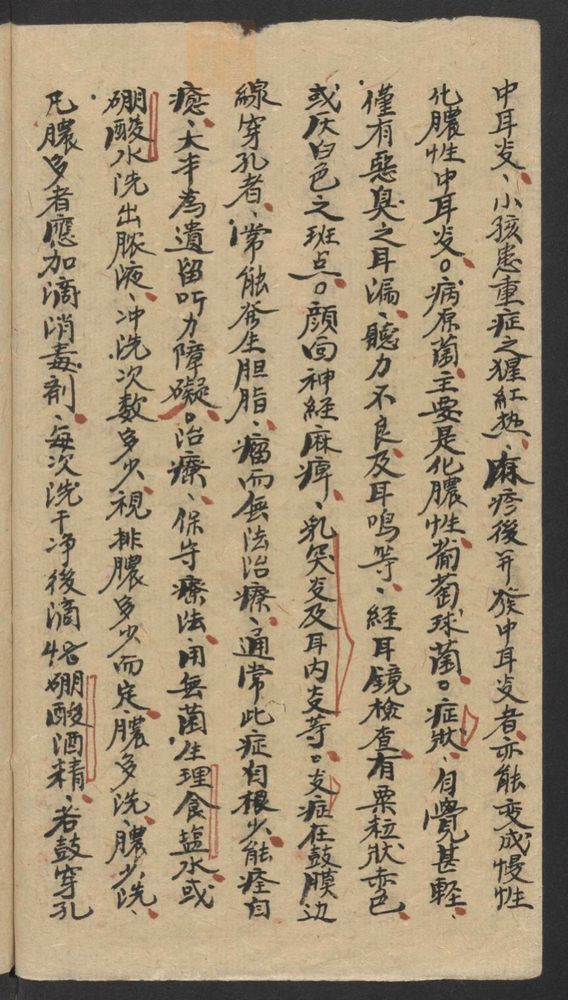 中耳炎、小孩患重症之猩紅热、麻疹後并發中耳炎者、亦能变成慢性
化膿性中耳炎。病原菌、主要是化膿性葡萄球菌。症狀、自覺甚軽、
僅有惡臭之耳漏、聽力不良、及耳鳴等、経耳鏡檢查、有粟粒狀赤色
或灰白色之班点。顔面神経麻痺、乳突炎及耳内炎等。炎症在鼓膜边
線穿孔者、常能發生胆脂、瘤而無法治療、通常此症自根少、能痊自
癒、大半為遺留听力障礙。治療、保守療法、用無菌生理食盐水或
硼酸水洗出膿液、冲洗次数多少、視排膿多少而定、膿多洗、膿少洗、
凡膿多者應加滴消毒剤、每次洗干净後滴 硼酸酒精、若鼓穿孔